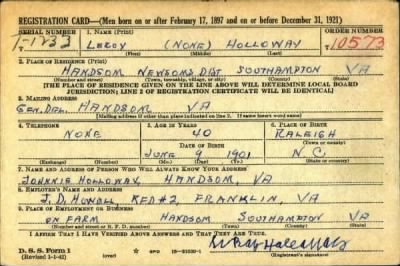 REGISTRATION CARD—(Men born on or after February 17, 1897 and on or before December 31, 1921)
SERIAL NUMBER 1. NAME (Print) ORDER NUMBER
T-1233 LEROY (NONE) HOLLOWAY 10573
(First) (Middle) (Last)
2. PLACE OF RESIDENCE (Print)
HANDSOM NEWSOMS DIST. SOUTHAMPTON VA
(Number and street) (Town, township, village, or city) (County) (State)
[THE PLACE OF RESIDENCE GIVEN ON THE LINE ABOVE WILL DETERMINE LOCAL BOARD
JURISDICTION; LINE 2 OF REGISTRATION CERTIFICATE WILL BE IDENTICAL]
3. MAILING ADDRESS
GEN. DEL. HANDSOM VA
[Mailing address if other than place indicated on line 2. If same insert word same]
4. TELEPHONE 5. AGE IN YEARS 6. PLACE OF BIRTH
NONE 40 RALEIGH
DATE OF BIRTH (Town or county)
JUNE 9 1901 N.C.
(Exchange) (Number) (Mo.) (Day) (Yr.) (State or country)
7. NAME AND ADDRESS OF PERSON WHO WILL ALWAYS KNOW YOUR ADDRESS
JOHNNIE HOLLOWAY, HANDSOM, VA
8. EMPLOYER'S NAME AND ADDRESS
J. D. HOWELL, RFD #2, FRANKLIN, VA
9. PLACE OF EMPLOYMENT OR BUSINESS
ON FARM HANDSOM SOUTHAMPTON VA
(Number and street or R. F. D. number) (Town) (County) (State)
I AFFIRM THAT I HAVE VERIFIED ABOVE ANSWERS AND THAT THEY ARE TRUE.
D. S. S. Form 1
(Revised 1-1-42) (Registrant's signature)